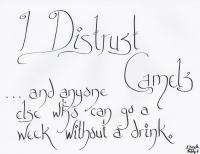 I Distrust
Camels
... and anyone
else who can go a
week without a drink.